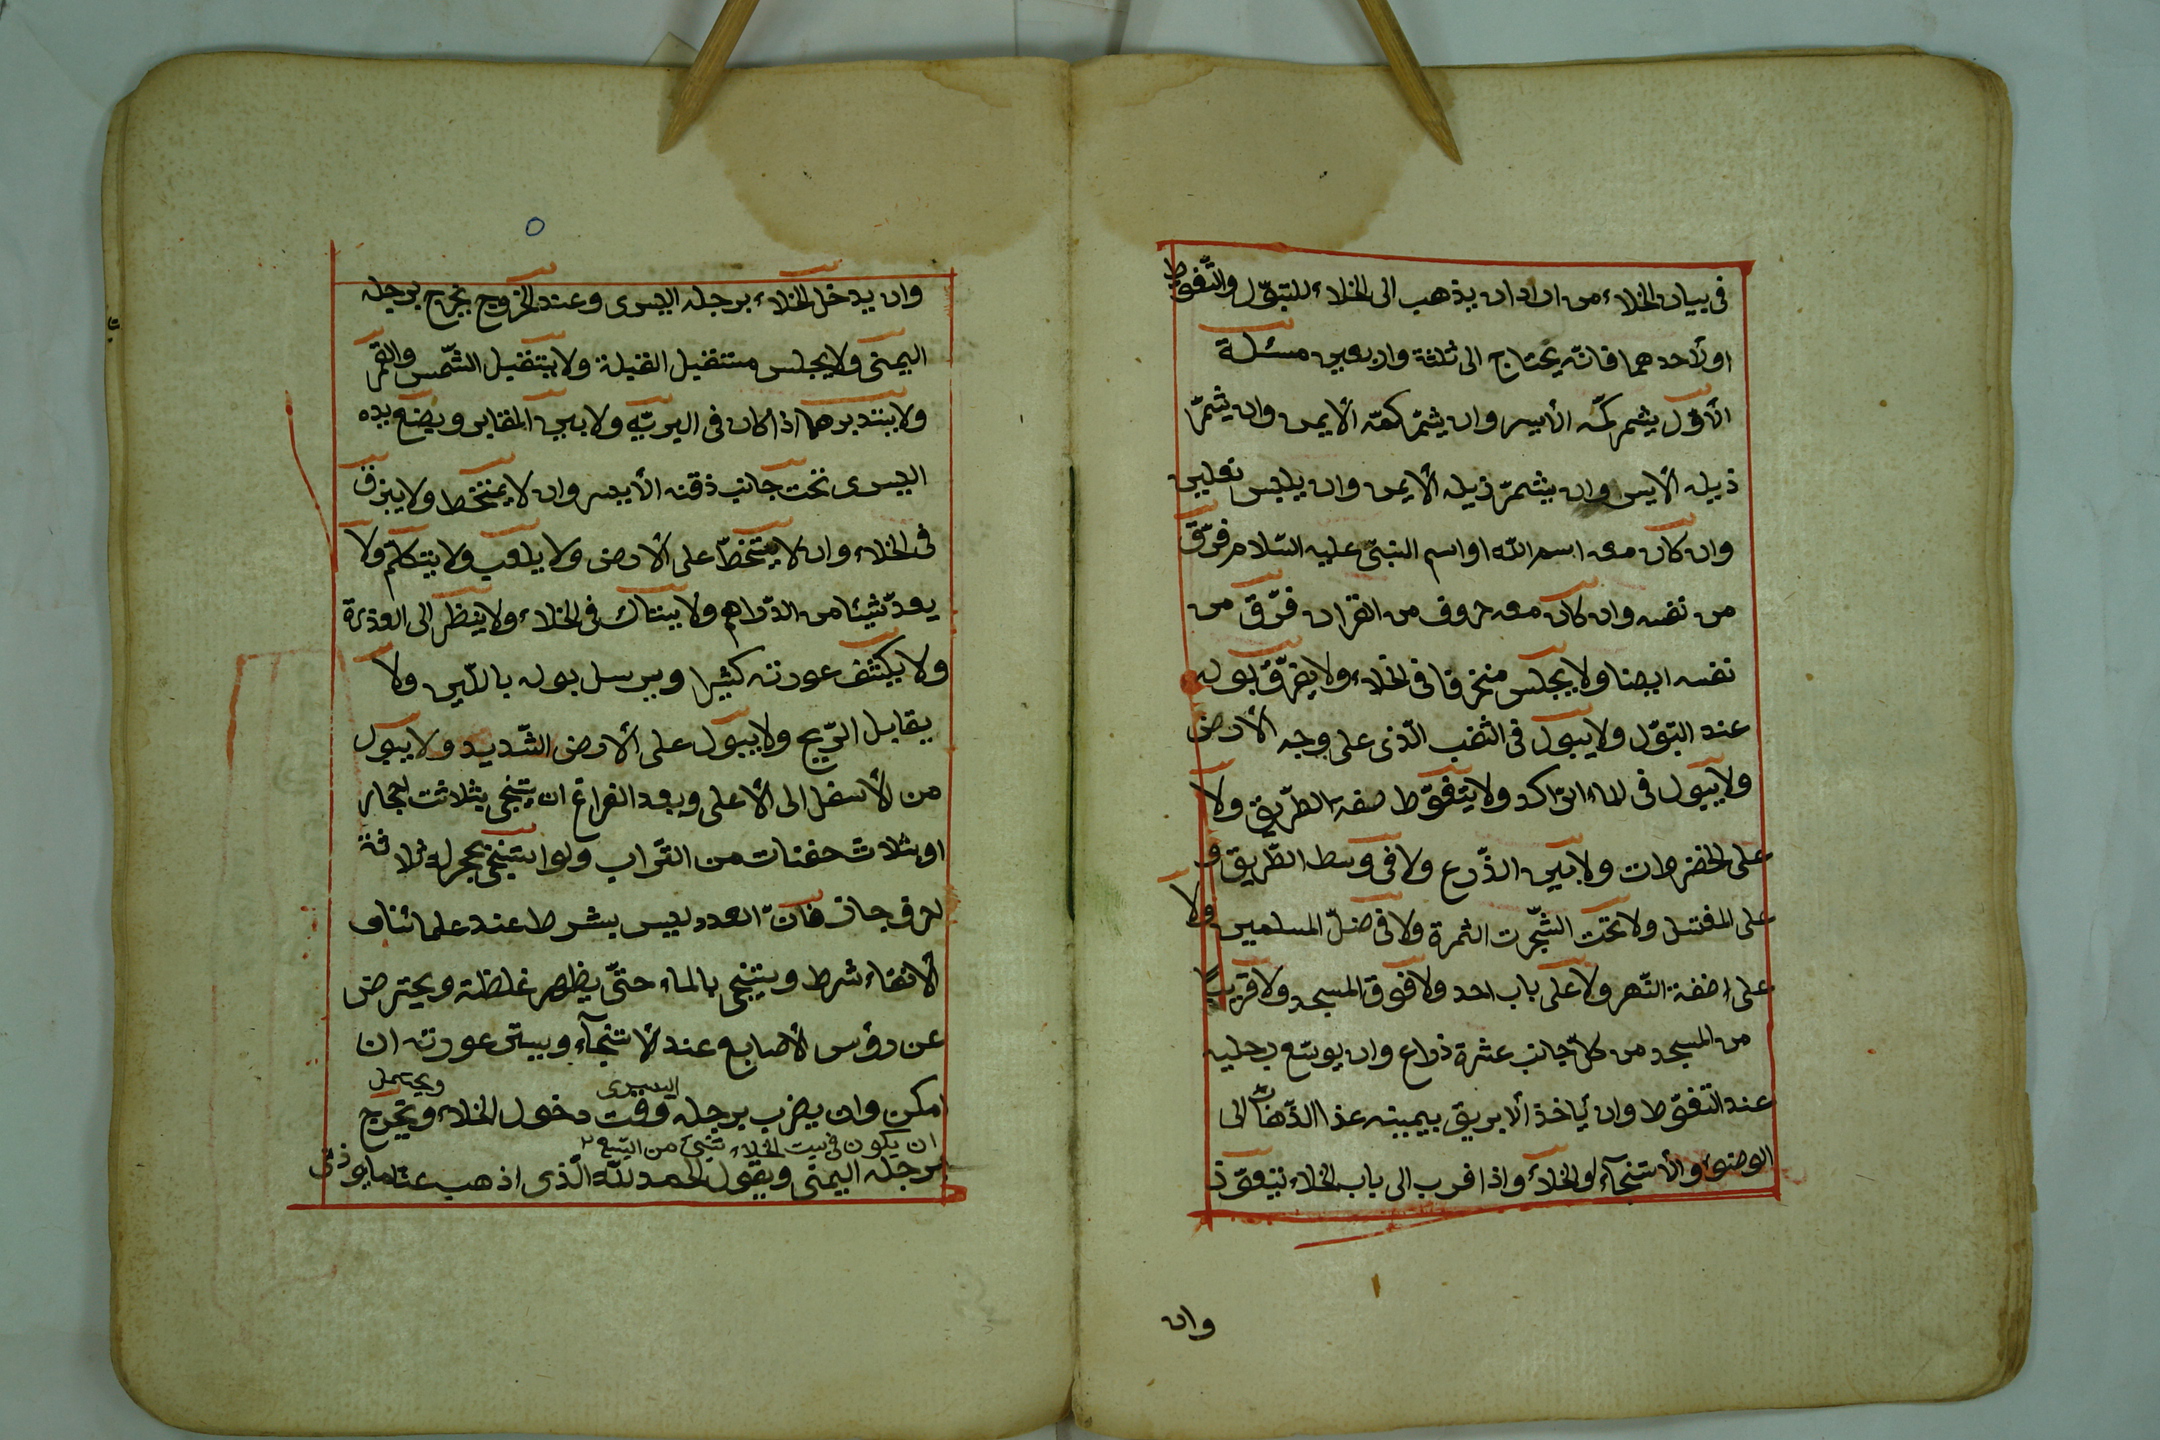 فى بيان الخلاء من اراد ان يذهب الى الخلاء للتبوّل والتّغوّط
اولأحدهما فانّه يحتاج الى ثلثة واربعين مسئلة
الأوّل يشمر كمّه الأيسر وان يشمّر كمّه الأيمن وان يشمّر
ذيله الأيسر وان يشمّر ذيله الأيمن وان يلبس نعلين
وان كان معه اسم اللّه او اسم النبىّ عليه السّلام فرّق
من نفسه وان كان معه حروف من القرأن فرّق من
نفسه ايضا ولا يجلس منحرفا فى الخلاء ولا يفرّق بوله
عند التبوّل ولا يبول فى الثقب الّذى على وجه الأرض
ولا يبول فى الماء الرّاكد ولا يتغوّط صفة الطّريق ولا
على الخضروات ولا بين الذّرع ولا فى وسط الطّريق و
على المغتسل ولا تحت الشّجرت الثمرة ولا فى ضلّ المسلمين ولا
على اضفة النّهر ولا على باب احد ولا فوق المسجد ولا قريبًا
من المسجد من كلّ جانب عشرة ذراع وان يوسّع رجليه
عند التغوّط وان يأخذ الأبريق بيمينه عند الذّهاب الى
الوضوء والأستنجآء والخلاء واذا قرب الى باب الخلاء يتعوّذ
وان
وان يدخل الخلاء برجله اليسرى وعند الخروج يخرج برجله
اليمنى ولا يجلس مستقبل القبلة ولا يستقبل الشّمس والقمر
ولا يستدبرهما اذا كان فى البريّة ولا بين المقابر ويضع يده
اليسرى تحت جانب ذقنه الأيسر وان لا يمتخط ولا يبزق
فى الخلاء وان لا يتخطّ على الأرض ولا يلعب ولا يتكلّم ولا
يعدّ شيئا من الدّراهم ولا يستاك فى الخلاء ولا ينظر الى العذرة
ولا يكشف عورته كثيرا ويرسل بوله بالّلين ولا
يقابل الرّيح ولا يبول على الأرض الشّديد ولا يبول
من الأسفل الى الأعلى وبعد الفراغ ان يستنجى بثلاثت احجار
او بثلاث حفنات من التّراب ولو استنجى بحجر له ثلاثة
احرف جاز فانّ العدد ليس بشرط عند علمائنا و
الأنقاء شرط ويستنجى بالماء حتّى يظهر غلظة ويحترض
عن رؤس الأصابع عند الأستنجآء ويستر عورته ان
امكن وان يضرب برجله اليسرى وقت دخول الخلاء ويخرج ويحتمل
ان يكون فى بيت الخلاء شيئ من السّبع
برجله اليمنى ويقول الحمد للّه الّذى اذهب عنّا ما يوذينى